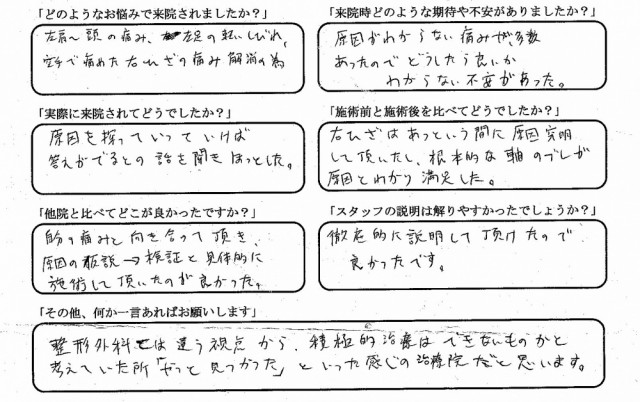 「どのようなお悩みで来院されましたか？」
左肩〜頭の痛み、左足の軽いしびれ、
空手で痛めた右ひざの痛み解消の為
「来院時どのような期待や不安がありましたか？」
原因がわからない痛みが多数
あったのでどうしたら良いか
わからない不安があった。
「実際に来院されてどうでしたか？」
原因を探っていっていけば
答えがでるとの話を聞きほっとした。
「施術前と施術後を比べてどうでしたか？」
右ひざはあっという間に原因究明
して頂いたし、根本的な軸のブレが
原因とわかり満足した。
「他院と比べてどこが良かったですか？」
の痛みと向き合って頂き、
原因の仮説→検証と具体的に
施術して頂いたのが良かった。
「スタッフの説明は解りやすかったでしょうか？」
徹底的に説明して頂けたので
良かったです。
「その他、何か一言あればお願いします」
整形外科とは違う視点から、積極的治療はできないものかと
考えていた所「やっと見つかった」といった感じの治療院だと思います。